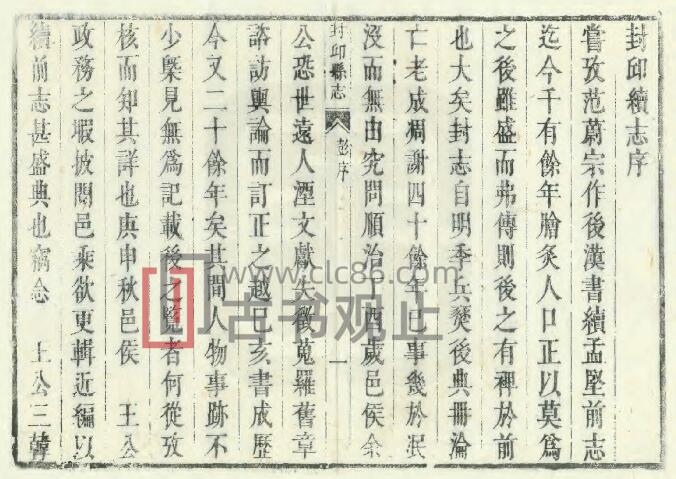 封邱續志序
嘗攷范蔚宗作後漢書續孟堅前志
迄今千有餘年膾炙人口正以莫為
之後雖盛而弗傳則後之有裨於前
也大矣封志自明季兵燹後典冊淪
亡老成凋謝四十餘年巳事幾於泯
沒而無由究問順治丁酉歲邑侯余
封邱縣志
彭序
一
公恐世遠人湮文獻失徵蒐羅舊章
諮訪輿論而訂正之越巳亥書成歷
今又二十餘年矣其間人物事跡不
少槩見無為記載後之覽者何從攷
核而知其詳也庚申秋邑侯 王公
政務之暇披閱邑乘欲更輯近編以
續前志甚盛典也竊念 王公三韓
www.clc86.com
古书观止